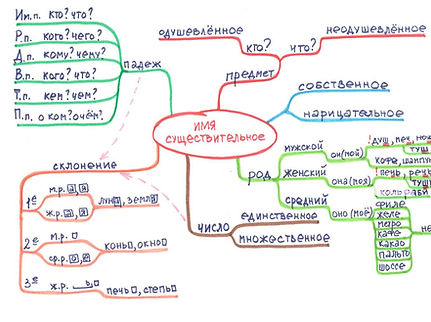 Им.п. кто? что?
Р.п. кого? чего?
Д.п. кому? чему?
В.п. кого? что?
Т.п. кем? чем?
П.п. о ком? о чём?
падеж
одушевлённое
неодушевлённое
кто?
что?
предмет
собственное
нарицательное
ИМЯ
СУЩЕСТВИТЕЛЬНОЕ
род
мужской
он (мой)
! душ, печ, нож
туш
кофе, шампун
женский
она (моя)
! печь, речь
туш
кольраби
средний
оно (моё)
филе
желе
метро
кафе
какао
пальто
шоссе
не
число
единственное
множественное
склонение
1е
м.р. а я
ж.р. а, я
луна, земля
2е
м.р.
ср.р. о, е
конь, окно
3е
ж.р. ь
печь, степь